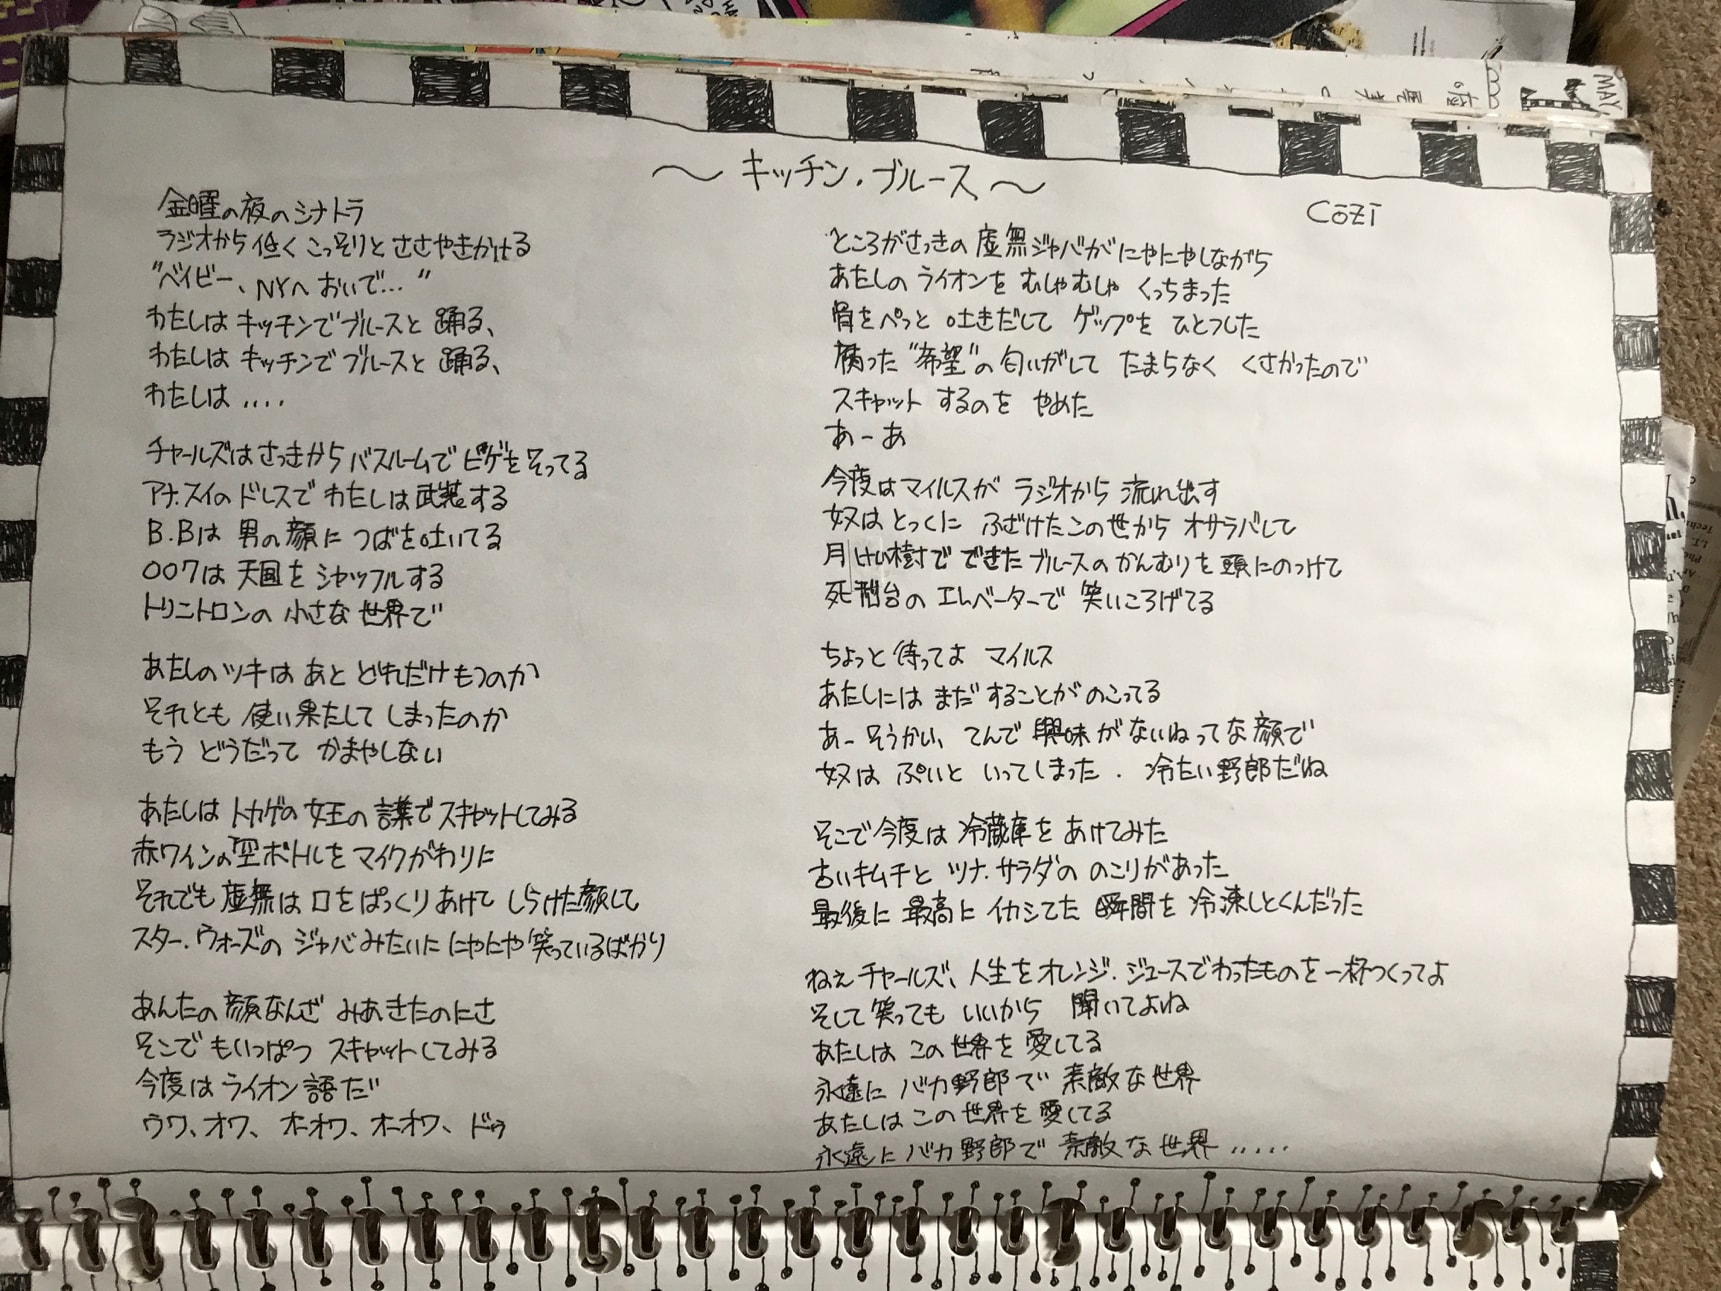 〜 キッチン・ブルース 〜
CōZI
金曜の夜のシナトラ
ラジオから低く こっそりと ささやきかける
"ベイビー、NYへ おいで…"
わたしは キッチンで ブルースと 踊る、
わたしは キッチンで ブルースと 踊る、
わたしは ....
チャールズは さっきから バスルームで ヒゲを そってる
アナ・スイの ドレスで わたしは 武装する
B.Bは 男の顔に つばを吐いてる
007は 天国を シャッフルする
トリニトロンの 小さな 世界で
あたしのツキは あと どれだけ もつのか
それとも 使い果たして しまったのか
もう どうだって かまやしない
あたしは トカゲの 女王の 言葉で スキャットしてみる
赤ワインの 空ボトルを マイクがわりに
それでも 虚無は 口をぱっくり あけて しらけた顔して
スター・ウォーズの ジャバみたいに にやにや 笑っているばかり
あんたの 顔なんざ みあきたのにさ
そこで もいっぱつ スキャットしてみる
今度は ライオン語だ
ウワ、オワ、オーオワ、オーオワ、ドゥ
ところがさっきの 虚無ジャバが にやにやしながら
あたしの ライオンを むしゃむしゃ くっちまった
骨を ぺっと 吐きだして ゲップを ひとつした
腐った "希望"の 匂いがして たまらなく くさかったので
スキャット するのを やめた
あーあ
今度は マイルスが ラジオから 流れ出す
奴は とっくに ふざけた この世から オサラバして
月けい樹で できた ブルースの かんむりを 頭にのっけて
死刑台の エレベーターで 笑いころげてる
ちょっと 待ってよ マイルス
あたしには まだ することが のこってる
あー そうかい、てんで 興味が ないねってな 顔で
奴は ぷいと いってしまった. 冷たい 野郎だね
そこで 今度は 冷蔵庫を あけてみた
古いキムチと ツナ・サラダの のこりがあった
最後に 最高に イカシてた 瞬間を 冷凍しとくんだった
ねえ チャールズ、人生を オレンジ・ジュースで わったものを 一杯つくってよ
そして 笑っても いいから 聞いてよね
あたしは この 世界を 愛してる
永遠に バカ野郎で 素敵な 世界
あたしは この 世界を 愛してる
永遠に バカ野郎で 素敵な 世界 .....
MAY